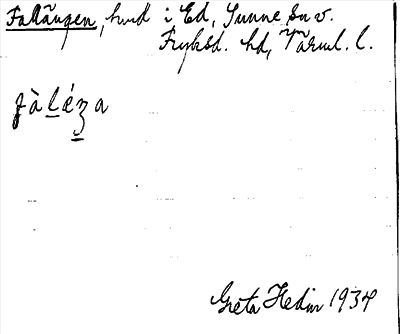 Fallängen, hmd i Ed, Sunne sn v.
Fryksd. hd, Värml. l.
fàléʒa
Greta Hedin 1934